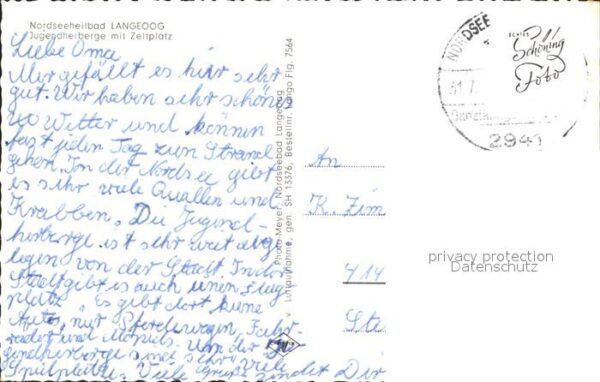 Nordseeheilbad LANGEOOG
Jugendherberge mit Zeltplatz
Liebe Oma
Mir gefällt es hier sehr
gut. Wir haben sehr schön
Witter und können
fast jeden Tag zum Strand
gehen. In der Nordsee gibt
es sehr viele Quallen und
Krabben. Die Jugend-
herberge ist sehr weit abge
legen von der Stadt. In der
Stadt gibt es auch einen Flug
platz. Es gibt dort keine
Autos, nur Pferdewagen, Fahr-
räder und Mopeds. Um der Ju
gendherberge sind sehr viele
Spielplätze. Viele Grüße sendet Dir
Photo-Meyer, Nordseebad Langeoog
Luftaufnahme, gen. SH 13376, Bestellnr. Lango Flg. 7564
NORDSEE
31.7
2941
ECHTES
Schöning
Foto
An
K. Zim
414
Ste
privacy protection
Datenschutz